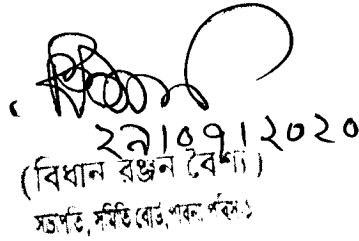 ২৯।০৭।২০২০
(বিধান রঞ্জন বৈশ্য)
সভাপতি, সমিতি বোর্ড, পাবনা পবিস-১